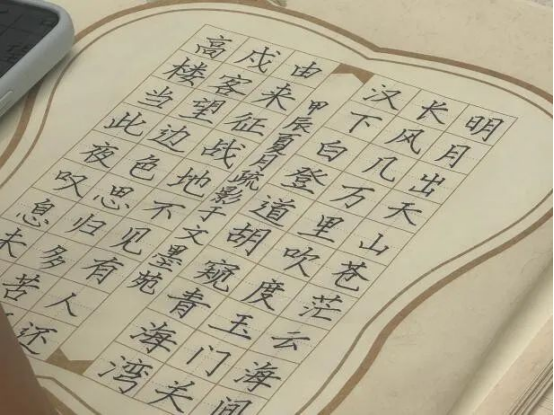 明月出天山苍茫云海间
长风几万里吹度玉门关
汉下白登道胡窥青海湾
甲辰夏月疏影于文墨苑
由来征战地不见有人还
戍客望边色思归多苦
高楼当此夜叹息未